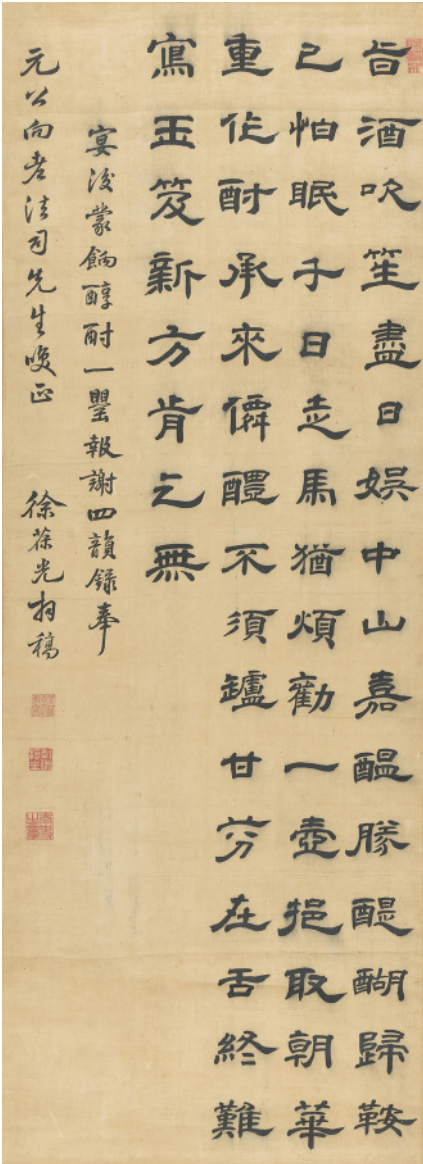 旨酒吹笙盡日娛中山嘉醖勝醍醐歸鞍
已怕眠千日走馬猶煩勸一壺挹取朝華
重作酎承來僊醴不須罏甘芬在舌終難
寫玉笈新方肯乞無
宴後蒙餉醇酎一罌報謝四韻錄奉
元公向老法司先生正
徐葆光稿